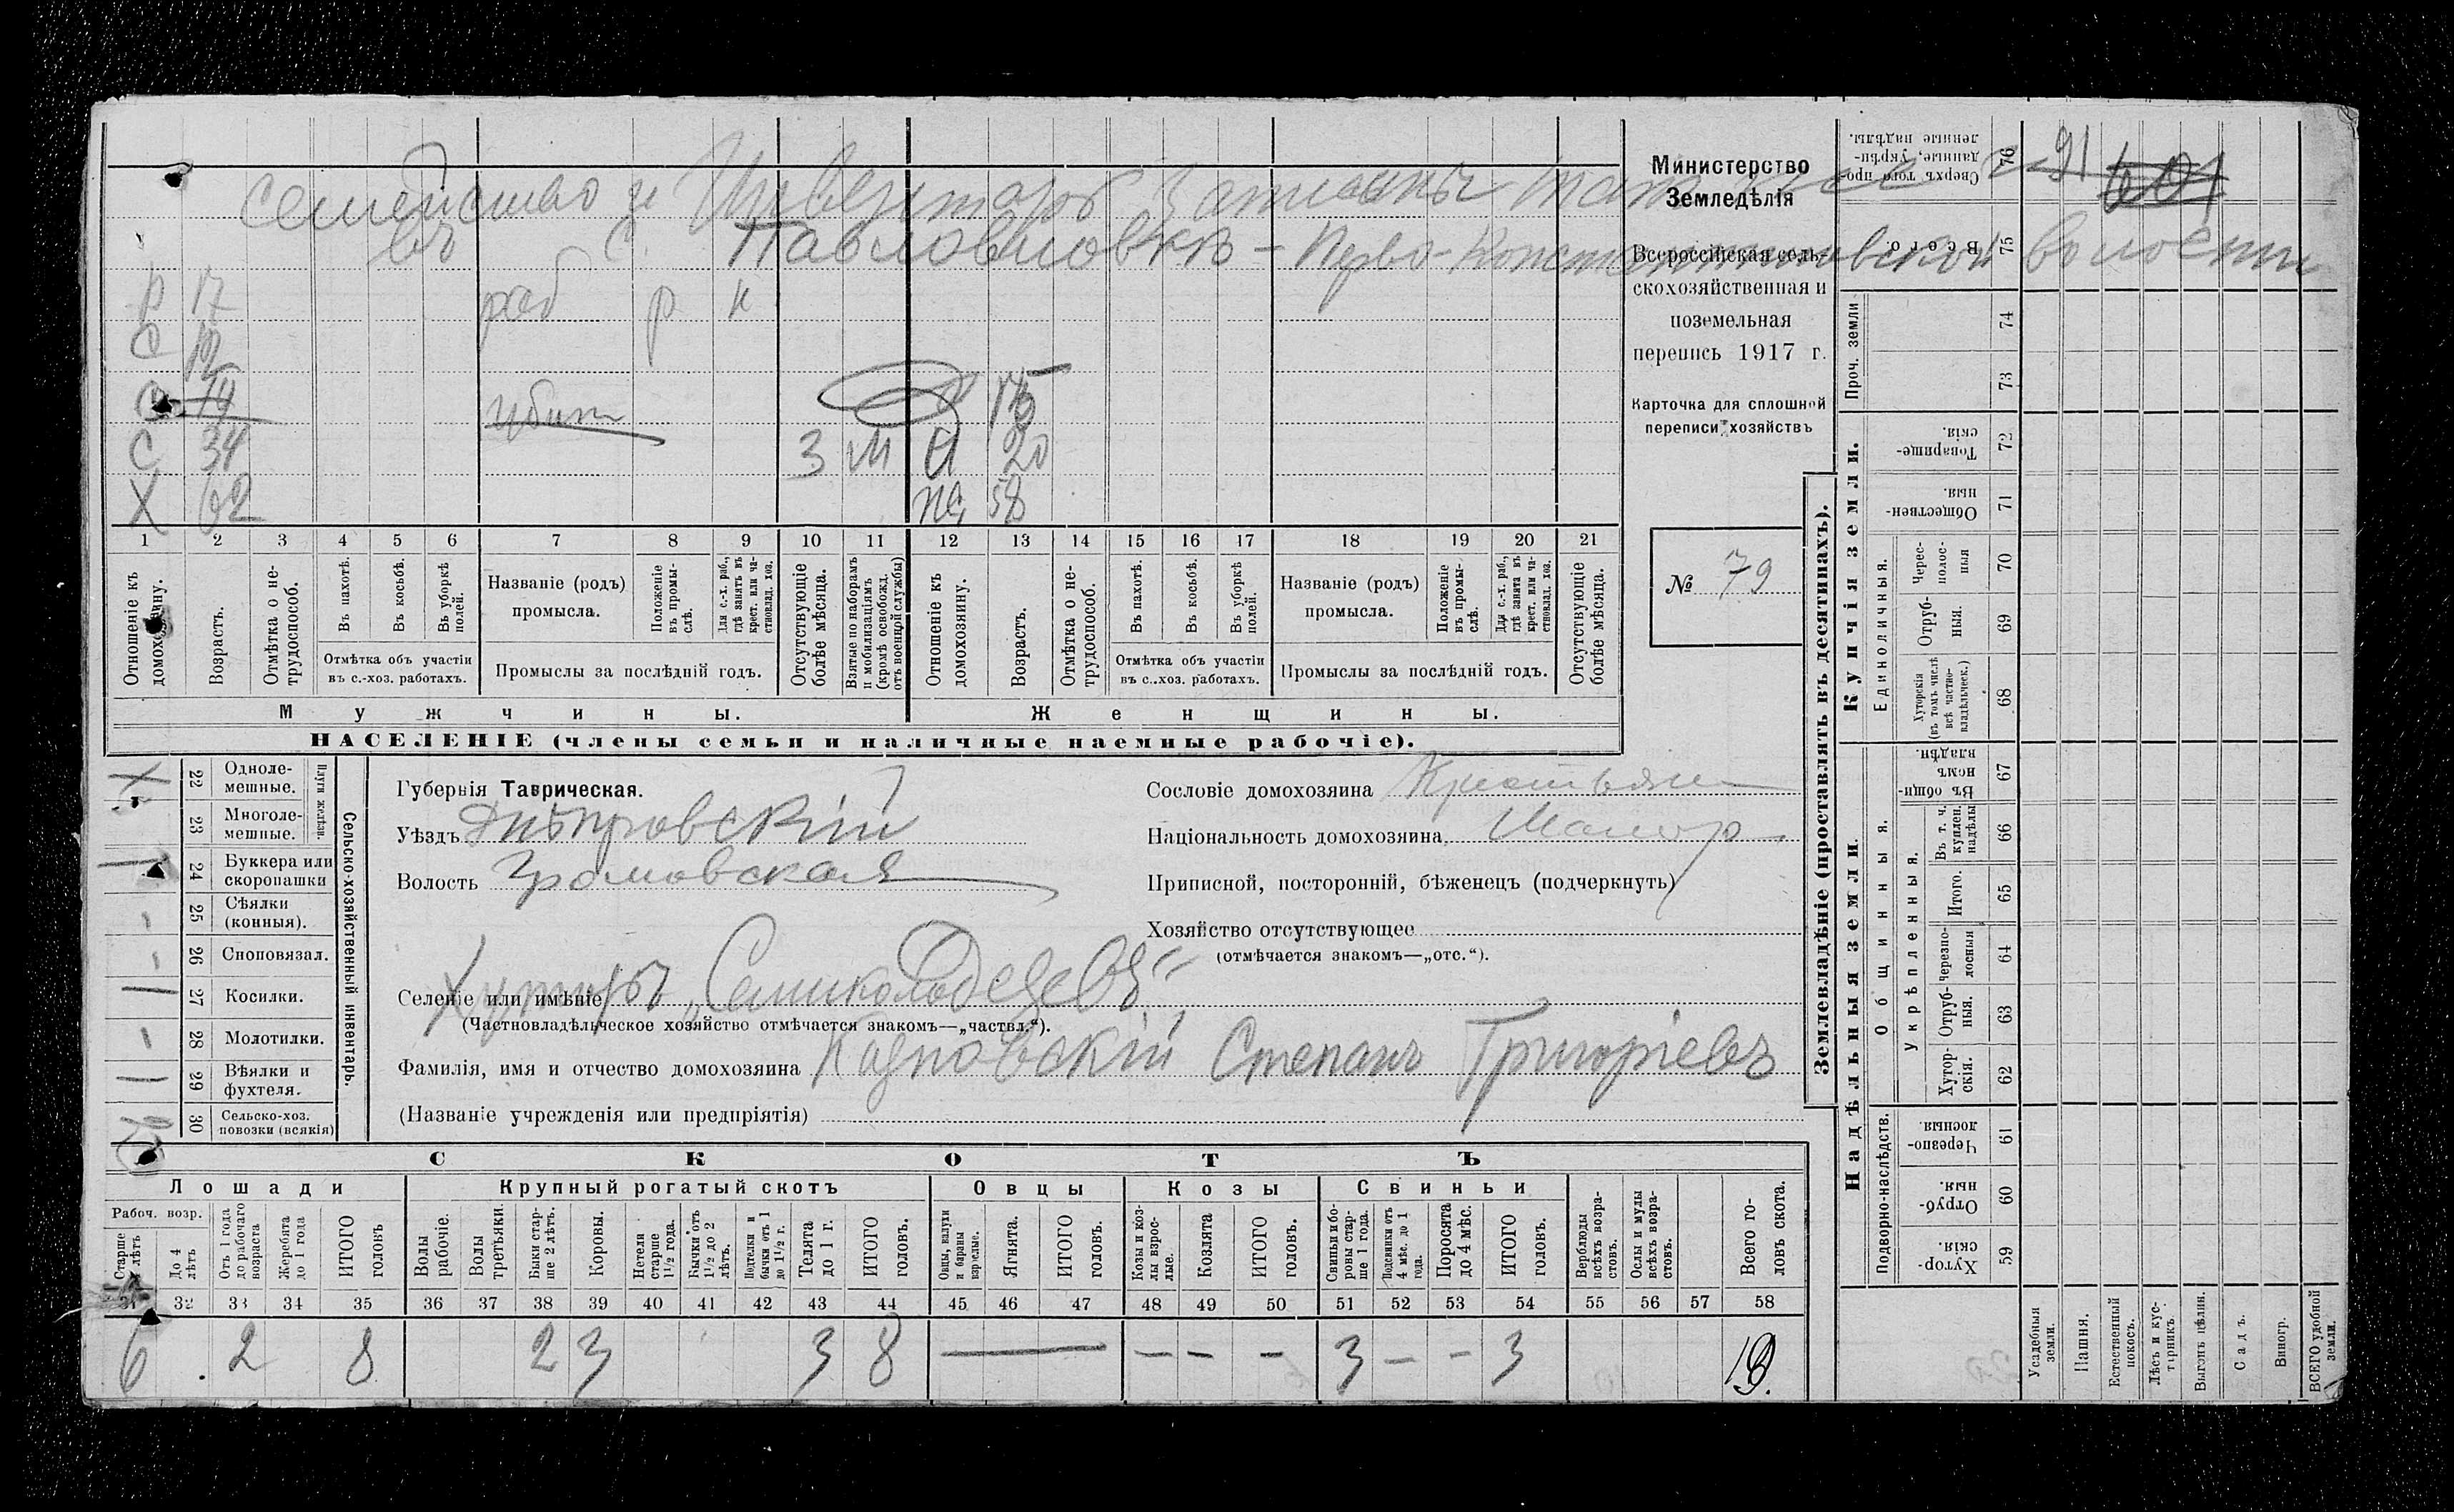 семейство и Инвентарь записаны
въ с. Павловкѣ - Перво-Константиновской волости
Р 17 раб р к
С 12
С 14 убит
С 34 3 М 20
Х 62 58
1 2 3 4 5 6 7 8 9 10 11 12 13 14 15 16 17 18 19 20 21
Отношеніе къ домохозяину.
Возрастъ.
Отмѣтка о нетрудоспособ.
Въ пахотѣ.
Въ косьбѣ.
Въ уборкѣ полей.
Отмѣтка объ участіи въ с.-хоз. работахъ.
Названіе (родъ) промысла.
Положеніе въ промыслѣ.
Для с.-х. раб., гдѣ занятъ въ крест. или частновлад. хоз.
Промыслы за послѣдній годъ.
Отсутствующіе болѣе мѣсяца.
Взятые по наборамъ и мобилизаціямъ (кромѣ освобожд. отъ военной службы)
Отношеніе къ домохозяину.
Возрастъ.
Отмѣтка о нетрудоспособ.
Въ пахотѣ.
Въ косьбѣ.
Въ уборкѣ полей.
Отмѣтка объ участіи въ с.-хоз. работахъ.
Названіе (родъ) промысла.
Положеніе въ промыслѣ.
Для с.-х. раб., гдѣ занята въ крест. или частновлад. хоз.
Промыслы за послѣдній годъ.
Отсутствующіе болѣе мѣсяца.
Мужчины.
Женщины.
НАСЕЛЕНІЕ (члены семьи и наличные наемные рабочіе).
Министерство
Земледѣлія
Всероссійская сель-
скохозяйственная и
поземельная
перепись 1917 г.
Карточка для сплошной
переписи хозяйствъ
№ 79
22 Однолемешные.
23 Многолемешные.
Плуги желѣзн.
24 Буккера или скоропашки
25 Сѣялки (конныя).
26 Сноповязал.
27 Косилки.
28 Молотилки.
29 Вѣялки и фухтеля.
30 Сельско-хоз. повозки (всякія)
Сельско-хозяйственный инвентарь.
Губернія Таврическая.
Уѣздъ Днѣпровскій
Волость Громовская
Сословіе домохозяина Крестьян
Національность домохозяина Малор
Приписной, посторонній, бѣженецъ (подчеркнуть)
Хозяйство отсутствующее
(отмѣчается знакомъ—„отс.“).
Селеніе или имѣніе Хуторъ „Семиколодезевъ“
(Частновладѣльческое хозяйство отмѣчается знакомъ—„частвл.“).
Фамилія, имя и отчество домохозяина Степанъ Григоріевъ
(Названіе учрежденія или предпріятія)
СКОТЪ
Лошади Крупный рогатый скотъ Овцы Козы Свиньи
Рабоч. возр.
Старше лѣтъ
До 4 лѣтъ
Отъ 1 года до рабочаго возраста
Жеребята до 1 года
ИТОГО головъ
Волы рабочіе.
Волы третьяки.
Быки старше 2 лѣтъ.
Коровы.
Нетели старше 1 1/2 года.
Бычки отъ 1 1/2 до 2 лѣтъ.
Подтелки и бычки отъ 1 до 1 1/2 г.
Телята до 1 г.
ИТОГО головъ.
Овцы, валухи и бараны взрослые.
Ягнята.
ИТОГО головъ.
Козы и козлы взрослые.
Козлята
ИТОГО головъ.
Свиньи и боровы старше 1 года.
Подсвинки отъ 4 мѣс. до 1 года.
Поросята до 4 мѣс.
ИТОГО головъ.
Верблюды всѣхъ возрастовъ.
Ослы и мулы всѣхъ возрастовъ.
Всего головъ скота.
31 32 33 34 35 36 37 38 39 40 41 42 43 44 45 46 47 48 49 50 51 52 53 54 55 56 57 58
6 2 8 2 3 3 8 — — — — 3 — — 3 19
Землевладѣніе (проставлять въ десятинахъ).
Купчія земли.
Надѣльныя земли.
Сверхъ того проданные, укрѣпленные надѣлы. 76 91 401
Всего. 75
Проч. земли
74
73
Товарищескія. 72
Общественныя. 71
Единоличныя.
Череполосныя 70
Отрубныя. 69
Хуторскія (въ томъ числѣ всѣ частновладѣльческ.) 68
Общинныя.
Въ общинномъ владѣн. 67
Укрѣпленныя.
Въ т. ч. куплен. надѣлы 66
Итого. 65
Черезполосныя 64
Отрубныя. 63
Хуторскія. 62
Подворно-наслѣдств.
Черезполосныя 61
Отрубныя. 60
Хуторскія. 59
Усадебныя земли.
Пашня.
Естественный покосъ.
Лѣсъ и кустарникъ.
Выгонъ цѣлин.
Садъ.
Виногр.
ВСЕГО удобной земли.